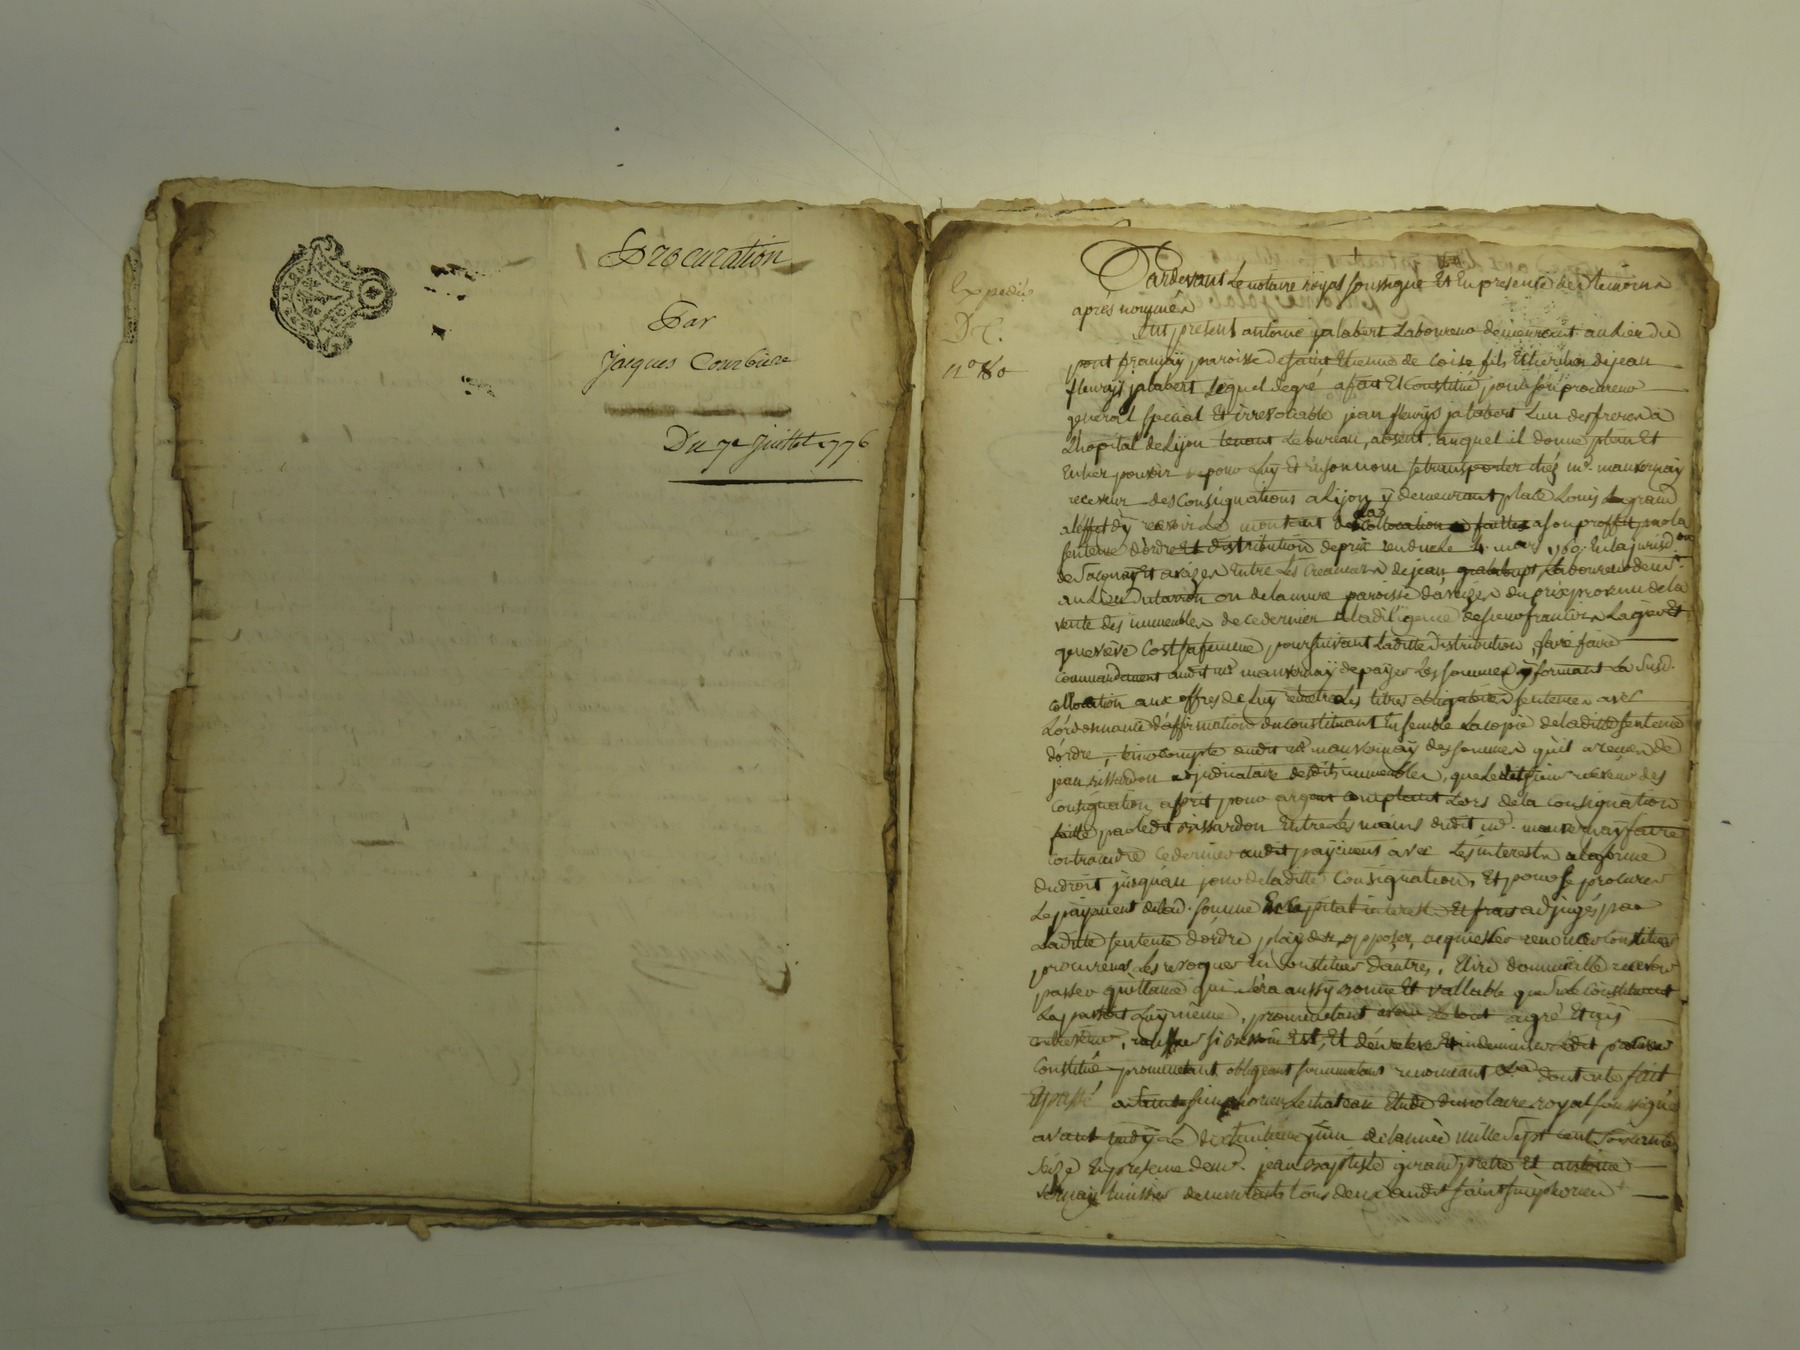 Procuration
Par
Jacques Courbiere
Du 7e Juillet 1776
Expediée
D C.
n° 80
Pardevant Le notaire royal soussigné Et En presence des temoins
après nommés
fut present antoine jalabert Laboureur demeurant au Lieu du
pont françaÿ paroisse de saint Etienne de Coise fils Et heritier de jean
fleurÿ jalabert Lequel de gré a fait Et Constitué pour son procureur
general special Et irrevocable jean fleurÿs jalabert L'un des freres a
L'hopital de Lÿon tenant Le bureau, absent, auquel il donne plein Et
Entier pouvoir de pour Luÿ Et En son nom se transporter chéz mr. mauvernaÿ
receveur des Consignations a Lÿon ÿ demeurant place Louis Le grand
a L'effet d'ÿ recevoir Le montant de La Collocation faitte a son proffit par La
sentence d'ordre Et distribution de prix rendue Le 4 mars 1769 En La jurisd.on
de Et aveizes Entre Les Creanciers de jean Laboureur demt.
au Lieu ou de La mure paroisse d'aveizes du prix provenu de La
vente des immeubles de ce dernier a La diligence de sieur francois Et
genevieve Cost sa femme poursuivant Laditte distribution, faire faire
Commandement audit mr mauvernaÿ de paÿer Les sommes ÿ formant La susd.
collocation aux offres de Luÿ remettre Les titres obligatoires sentences avec
L'ordonnance d'affirmation du Constituant Ensemble La copie de Laditte sentence
d'ordre, tenir compte audit mr mauvernaÿ des sommes qu'il a recues de
jean rissardon adjudicataire desdits immeubles, que Ledit sieur receveur des
Consignation a pris pour argent comptant Lors de La consignation
faitte par Ledit rissardon Entre Les mains dudit mr. mauvernaÿ faire
contraindre ce dernier audit paÿement avec Les interests a La forme
du droit jusqu'au jour de Laditte Consignation, Et pour se procurer
Le paÿement de Lad. somme En Capital interest Et frais adjugés par
Laditte sentence d'ordre plaÿder, opposer, acquiescer renoncer Constituer
procureurs Les revoquer En Constituer d'autres, Elire domicille recevoir
passer quittance qui sera aussÿ bonne Et vallable que si Le Constituant
La passoit Luÿ même, promettant avoir Le tout agré Et
, ratiffier si besoin Est, Et d'En relever Et indemniser Ledit procureur
Constitué promettant obligeant soumettant renoncant &a dont acte fait
Et passé a saint simphorien Le chateau Etude du notaire royal soussigné
avant midÿ Le juin de L'année mille sept cent soixante
seize En presence de mr. jean Baptiste giraud pretre Et antoine
huissier demeurants tous deux audit saint simphorien